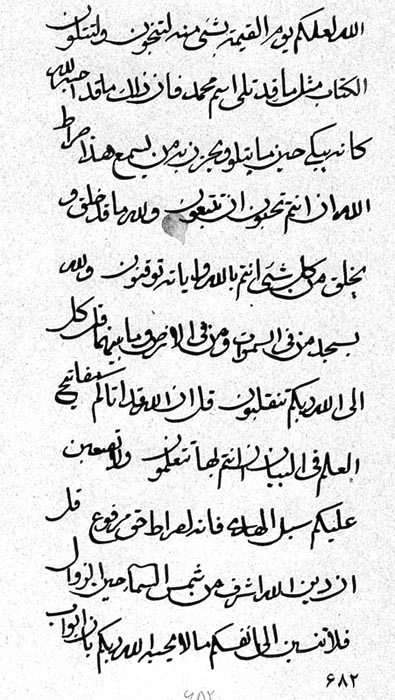 الله لعلكم يوم القيمة بشئ منه لتنجون ولتتلون
الكتاب مثل ما قد تلى اسم محمد فان ذلك ما قد احب الله
كانه يبكى حين ما يتلو ويحزن به من يسمع هذا صراط
الله ان انتم تحبون ان تتبعون ولله ما قد خلق و
يخلق من كل شئ انتم بالله واياته توقنون ولله
يسجد من فى السموات ومن فى الارض وما بينهما قل كل
الى الله ربكم تنقلبون قل ان الله قد اتاكم مفاتيح
العلم فى البيان انتم بها تتعلمون ولا تصعبن
عليكم سبل الهدى فانه لصراط حق مرفوع قل
ان دين الله اشرف من شمس السماء حين الزوال
فلا تنسبن الى انفسكم ما لا يحبه الله ربكم بان ابواب
٦٨٢
٦٨٢